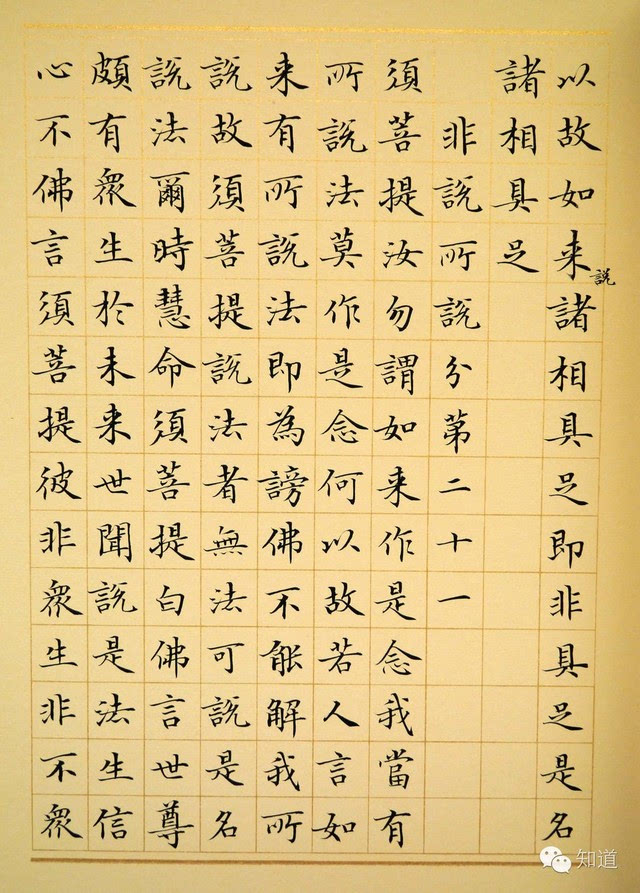 以故如来說諸相具足即非具足是名
諸相具足
非說所說分第二十一
須菩提汝勿謂如来作是念我當有
所說法莫作是念何以故若人言如
来有所說法即為謗佛不能解我所
說故須菩提說法者無法可說是名
說法爾時慧命須菩提白佛言世尊
頗有衆生於未来世聞說是法生信
心不佛言須菩提彼非衆生非不衆
知道